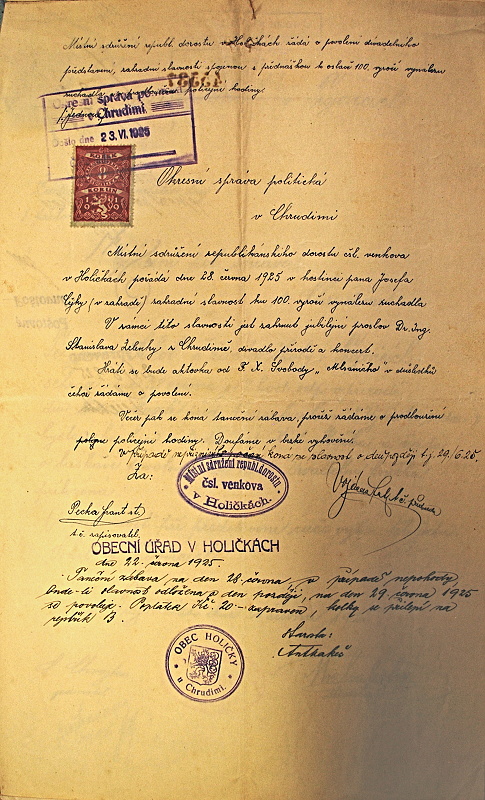 Místní sdružení republ. dorostu v Holičkách žádá o povolení divadelního
představení, zahradní slavnosti spojenou s přednáškou k oslavě 100. výročí vynálezu
ruchadla policejní hodiny.
Okresní správa po
v Chrudimi.
Došlo dne 23. VI. 1925
KOLEK
KORUN
1919
Okresní správa politická
v Chrudimi
Místní sdružení republikánského dorostu čsl. venkova
v Holičkách pořádá dne 28. června 1925 v hostinci pana Josefa
(v zahradě) zahradní slavnost ku 100. výročí vynálezu ruchadla
V rámci této slavnosti jest zahrnut jubilejní proslov Dr. Ing.
Stanislava Zelenky z Chrudimě, divadlo přírodě a koncert.
Hráti se bude aktovka od F. X. Svobody „ v důsledku
čehož žádáme o povolení.
Večer pak se koná taneční zábava, pročež žádáme o prodloužení
policejní hodiny. Doufáme v brzké vyhovění.
V případě koná se slavnost o den později t.j. 29./6.25.
Za:
Místní sdružení republ. dorostu
čsl. venkova
v Holičkách.
Pecka Frant. st.
t. č. zapisovatel.
OBECNÍ ÚŘAD V HOLIČKÁCH
dne 22. června 1925.
Taneční zábava na den 28. června, v případě nepohody
bude-li slavnost odložena o den později, na den 29. června 1925
se povoluje. Poplatek Kč. 20- zapraven, kolky se přilepí na
rejstřík B.
Starosta:
OBEC HOLIČKY
u Chrudimi.